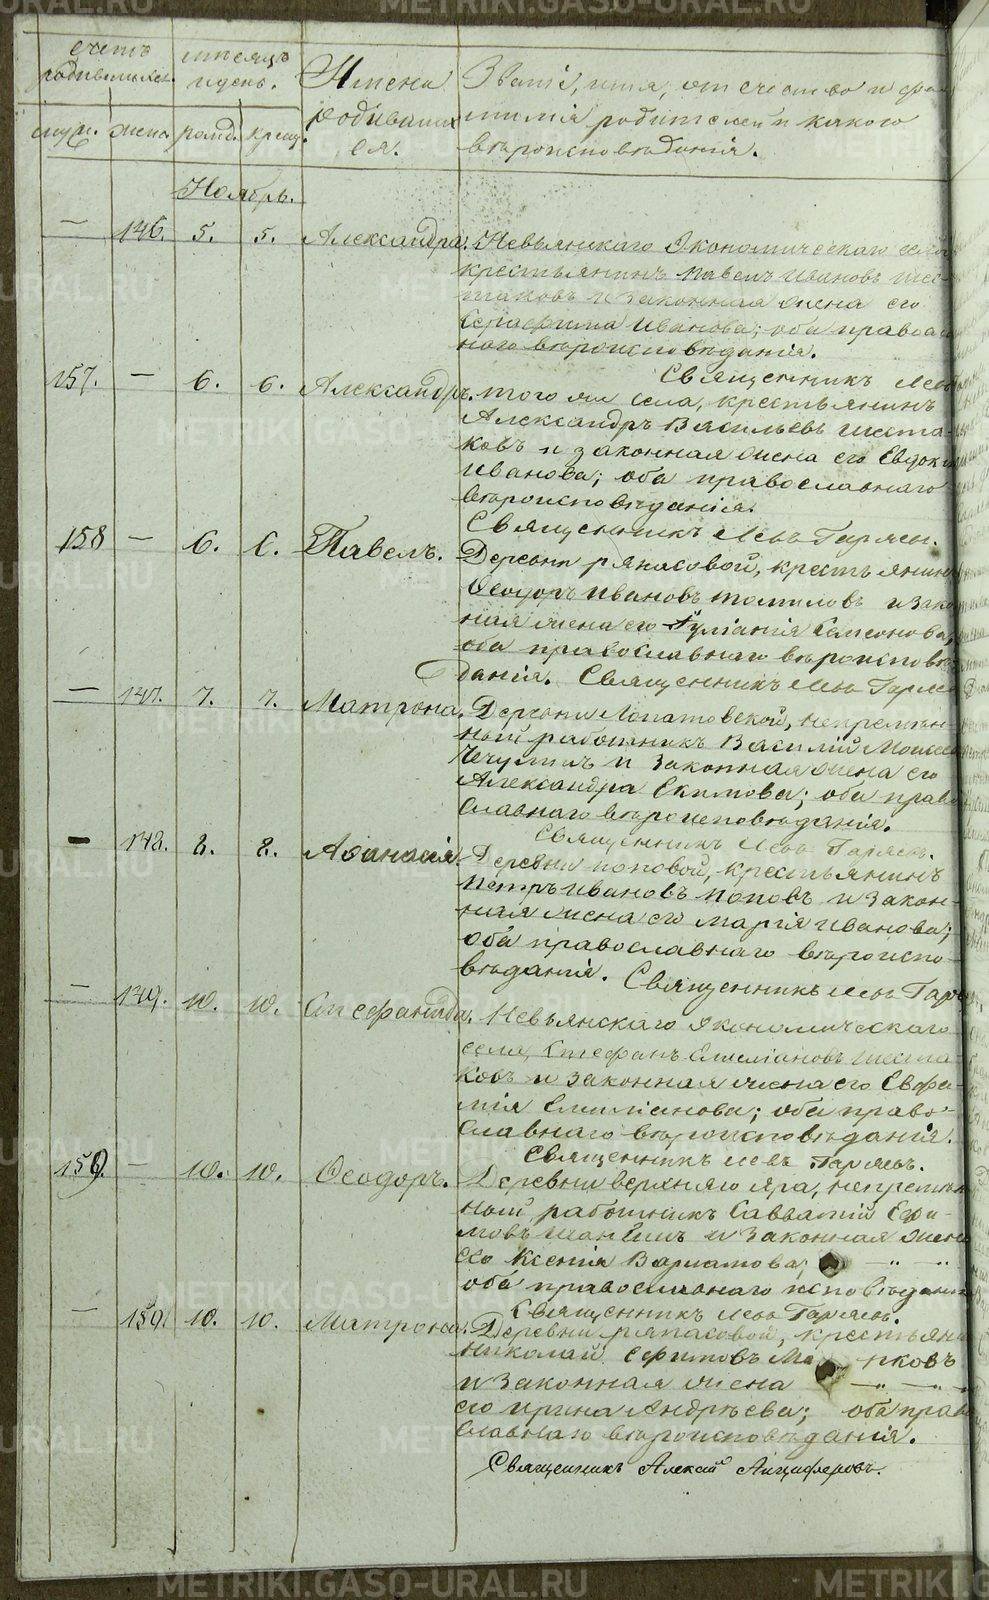 счетъ
родившихся.
мѣсяцъ
и день.
Имена
родивших
ся.
Званіе, имя, отчество и фа
милія родителей и какого
вѣроисповѣданія.
муж. жен. рожд. крещ.
Ноябрь.
— 146. 5. 5. Александра. Невьянскаго Экономическаго села
крестьянинъ Павелъ Ивановъ Шес-
таковъ и законная жена его
Серафима Иванова; оба правосла
внаго вѣроисповѣданія.
Священникъ Левъ
157. — 6. 6. Александръ. того же села, крестьянинъ
Александръ Васильевъ Шеста-
ковъ и законная жена его Евдокія
Иванова; оба православнаго
вѣроисповѣданія.
Священникъ Левъ Гаряевъ.
158 — 6. 6. Павелъ. Деревни Ряпасовой, крестьянинъ
Ѳеодоръ Ивановъ Томиловъ и зако
ная жена его Іуліанія Семенова,
оба православнаго вѣроисповѣ
данія. Священникъ Левъ Гаряев
— 147. 7. 7. Матрона. Деревни Лопатовской, непремѣн-
ный работникъ Василій Моисеев
и законная жена его
Александра Екимова; оба право
славнаго вѣроисповѣданія.
Священникъ Левъ Гаряевъ.
— 148. 8. 8. Аѳанасія. Деревни Поповой, крестьянинъ
Петръ Ивановъ Поповъ и закон-
ная жена его Марія Иванова;
оба православнаго вѣроиспо-
вѣданія. Священникъ Левъ Гаря
— 149. 10. 10. Стефанида. Невьянскаго Экономическаго
села, Стефанъ Емиліановъ Шеста-
ковъ и законная жена его Евфи-
мія Емиліанова; оба право-
славнаго вѣроисповѣданія.
Священникъ Левъ Гаряевъ.
159. — 10. 10. Ѳеодоръ. Деревни Верхняго Яра, непремѣн
ный работникъ Савватій Ефи-
мовъ и законная жена
его Ксенія Варламова; — „ — „
оба православнаго исповѣданія
Священникъ Левъ Гаряевъ.
— 150. 10. 10. Матрона. Деревни Ряпасовой, крестьянин
Николай Ефимовъ Ма нковъ
и законная жена — „ — „ —
его Ирина Андреева; оба право
славнаго вѣроисповѣданія.
Священникъ Алексій Анциферовъ.
METRIKI.GASO-URAL.RU